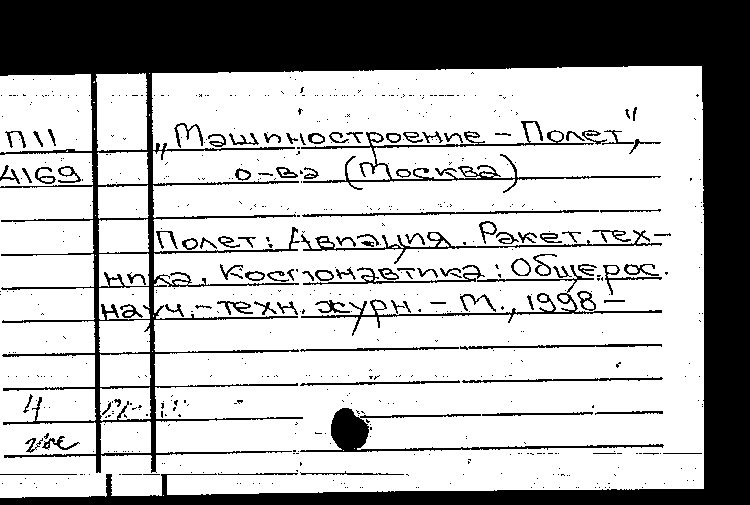 П11 „Машиностроение – Полет",
4169 о-ва (Москва)
Полет: Авиация. Ракет. тех-
ника. Космонавтика: Общерос.
науч.-техн. журн. – М., 1998 –
4